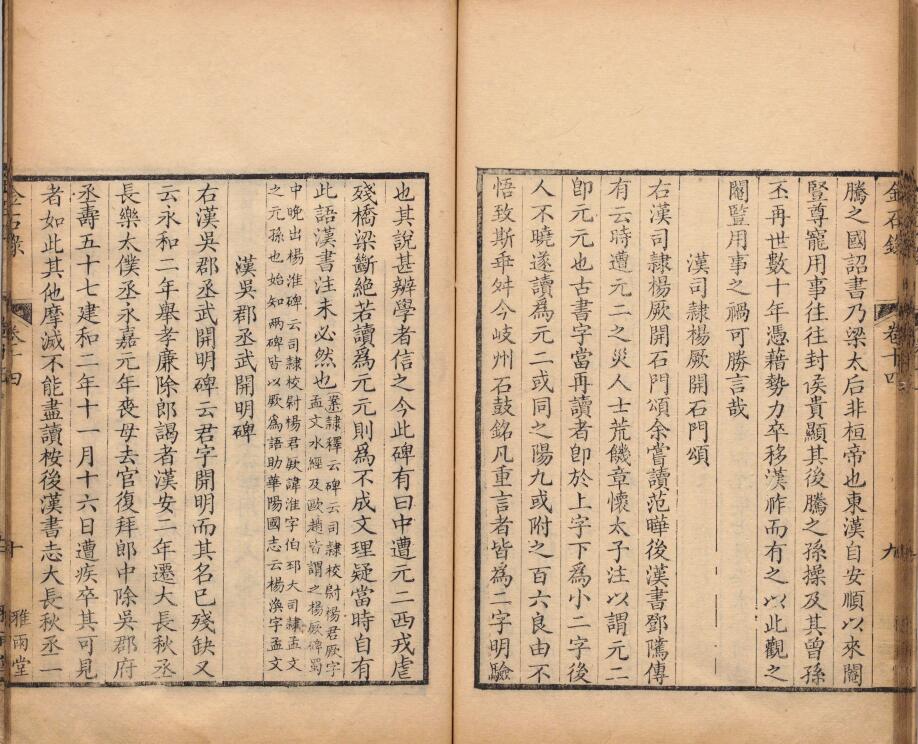 金石錄 卷十四 九
騰之國詔書乃梁太后非桓帝也東漢自安順以來閹
豎尊寵用事往往封侯貴顯其後騰之孫操及其曾孫
丕再世數十年憑藉勢力卒移漢祚而有之以此觀之
閹豎用事之禍可勝言哉
漢司隸楊厥開石門頌
右漢司隸楊厥開石門頌余嘗讀范曄後漢書鄧騭傳
有云時遭元二之災人士荒饑章懷太子注以謂元二
卽元元也古書字當再讀者卽於上字下爲小二字後
人不曉遂讀爲元二或同之陽九或附之百六良由不
悟致斯乖舛今岐州石鼓銘凡重言者皆爲二字明驗
也其說甚辨學者信之今此碑有曰中遭元二西戎虐
殘橋梁斷絕若讀爲元元則爲不成文理疑當時自有
此語漢書注未必然也案隸釋云碑云司隸校尉楊君厥字
孟文水經及歐趙皆謂之楊厥碑蜀
中晚出楊淮碑云司隸校尉楊君厥諱淮字伯邳大司隸孟文
之元孫也始知兩碑皆以厥爲語助華陽國志云楊渙字孟文
漢吳郡丞武開明碑
右漢吳郡丞武開明碑云君字開明而其名已殘缺又
云永和二年舉孝廉除郎謁者漢安二年遷大長秋丞
長樂太僕丞永嘉元年喪母去官復拜郎中除吳郡府
丞壽五十七建和二年十一月十六日遭疾卒其可見
者如此其他摩滅不能盡讀桉後漢書志大長秋丞一
金石錄 卷十四 十 雅雨堂